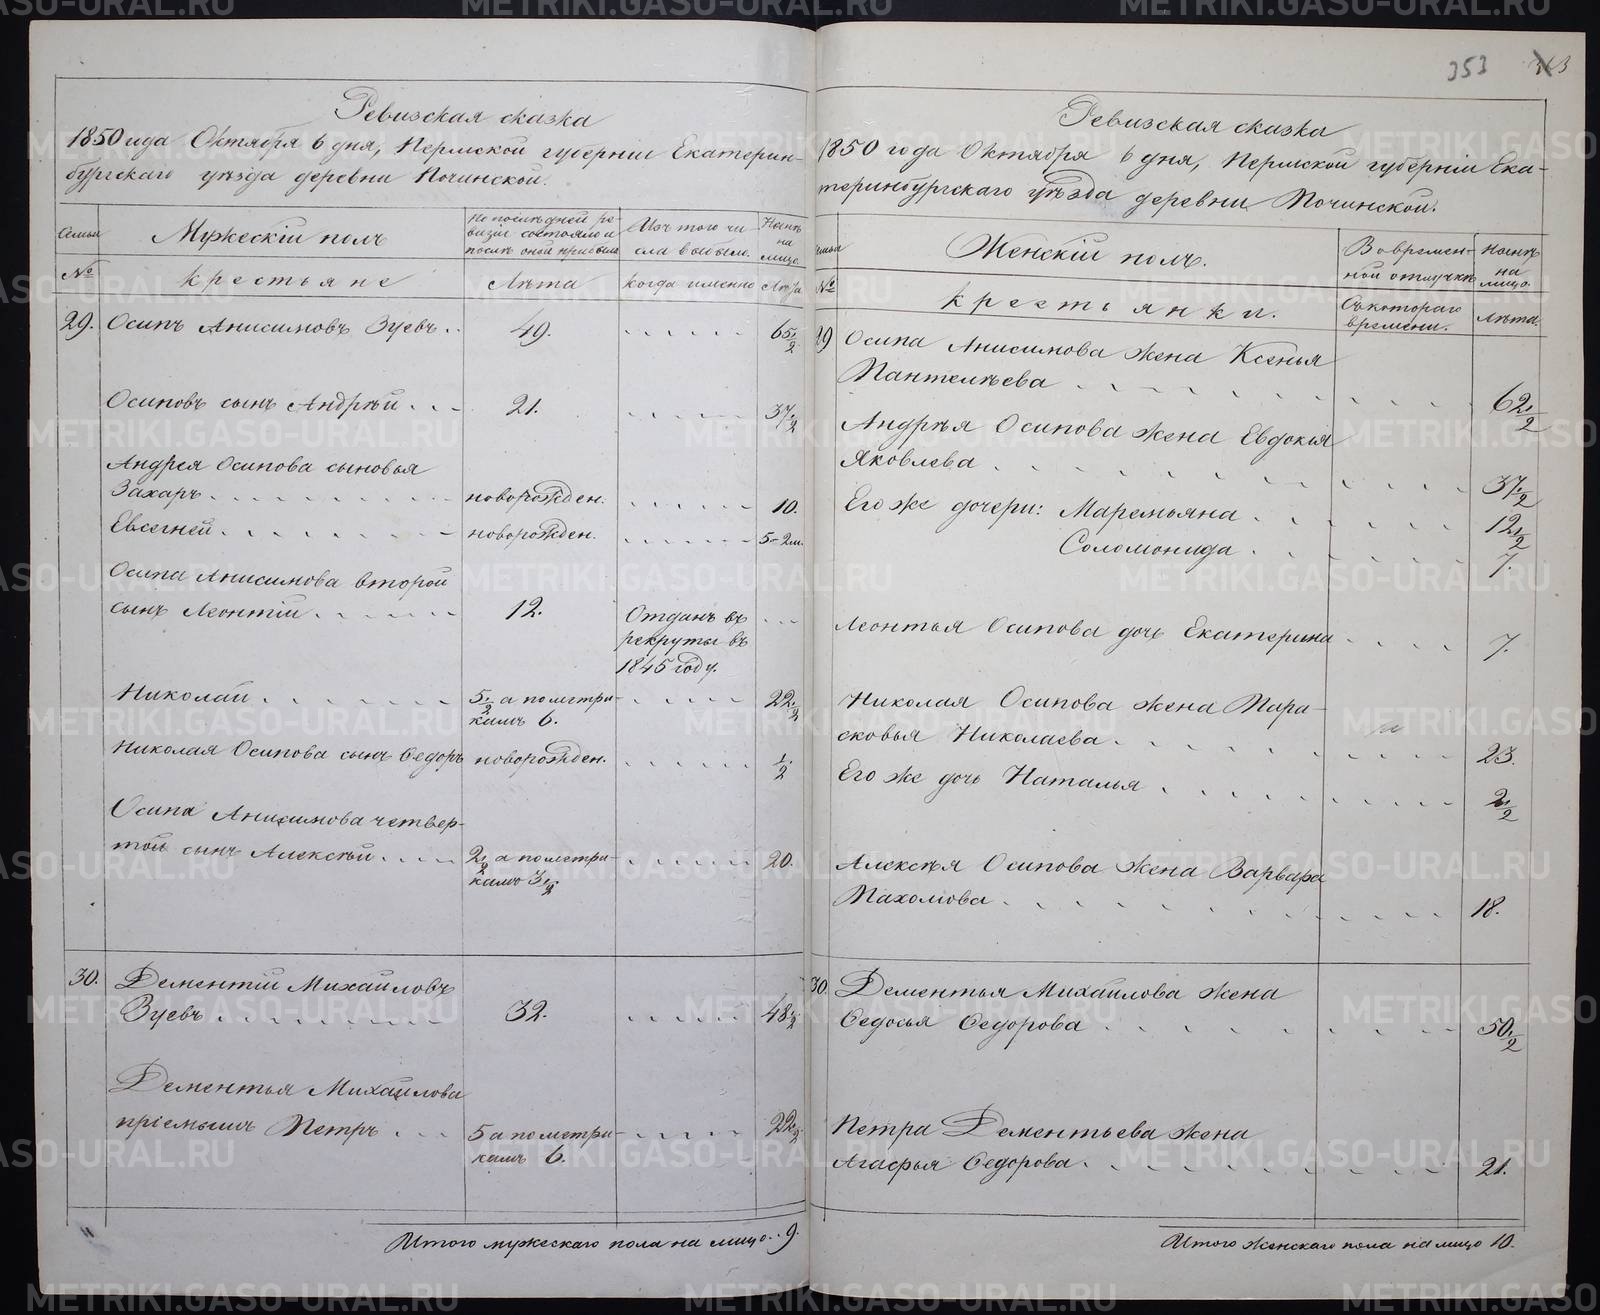 353
Ревизская сказка
1850 года Октября 6 дня, Пермской губерніи Екатерин-
бургскаго уѣзда деревни Починской.
Семьи
Мужескій полъ
По послѣдней ре-
визіи состояло и
послѣ оной прибыло
Изъ того чи
сла выбыло.
Нынѣ
на
лицо.
№
крестьяне
Лѣта
когда именно
Лѣта
29. Осипъ Анисимовъ Зуевъ . . 49. 65 1/2
Осиповъ сынъ Андрѣй . . . 21. 37 1/2
Андрея Осипова сыновья
Захаръ новорожден. 10.
Евсегней новорожден. 5 - 2 м.
Осипа Анисимова второй
сынъ Леонтій 12. Отданъ въ
рекруты въ
1845 году.
Николай 5 1/2 а по метри- 22 1/2
камъ 6.
Николая Осипова сынъ Ѳедоръ новорожден. 1/2
Осипа Анисимова четвер-
той сынъ Алексѣй 2 1/2 а по метри- 20.
камъ 3 1/2
30. Дементій Михайловъ
Зуевъ 32. 48 1/2
Дементья Михайлова
пріемышъ Петръ 5 а по метри- 22 1/2
камъ 6.
Итого мужескаго пола на лицо . . 9.
Ревизская сказка
1850 года Октября 6 дня, Пермской губерніи Ека-
теринбургскаго уѣзда деревни Починской.
Семьи
Женскій полъ.
Во времен-
ной отлучкѣ
Нынѣ
на
лицо.
№
крестьянки.
Съ котораго
времени.
Лѣта.
29 Осипа Анисимова жена Ксенья
Пантелѣева 62 1/2
Андрѣя Осипова жена Евдокія
Яковлева 37 1/2
Его же дочери: Маремьяна 12 1/2
Соломонида 7.
Леонтья Осипова дочь Екатерина 7.
Николая Осипова жена Пара-
сковья Николаева 23.
Его же дочь Наталья 2 1/2
Алексѣя Осипова жена Варвара
Пахомова 18.
30. Дементья Михайлова жена
Ѳедосья Ѳедорова 50 1/2
Петра Дементьева жена
Агафья Ѳедорова 21.
Итого женскаго пола на лицо 10.
METRIKI.GASO-URAL.RU